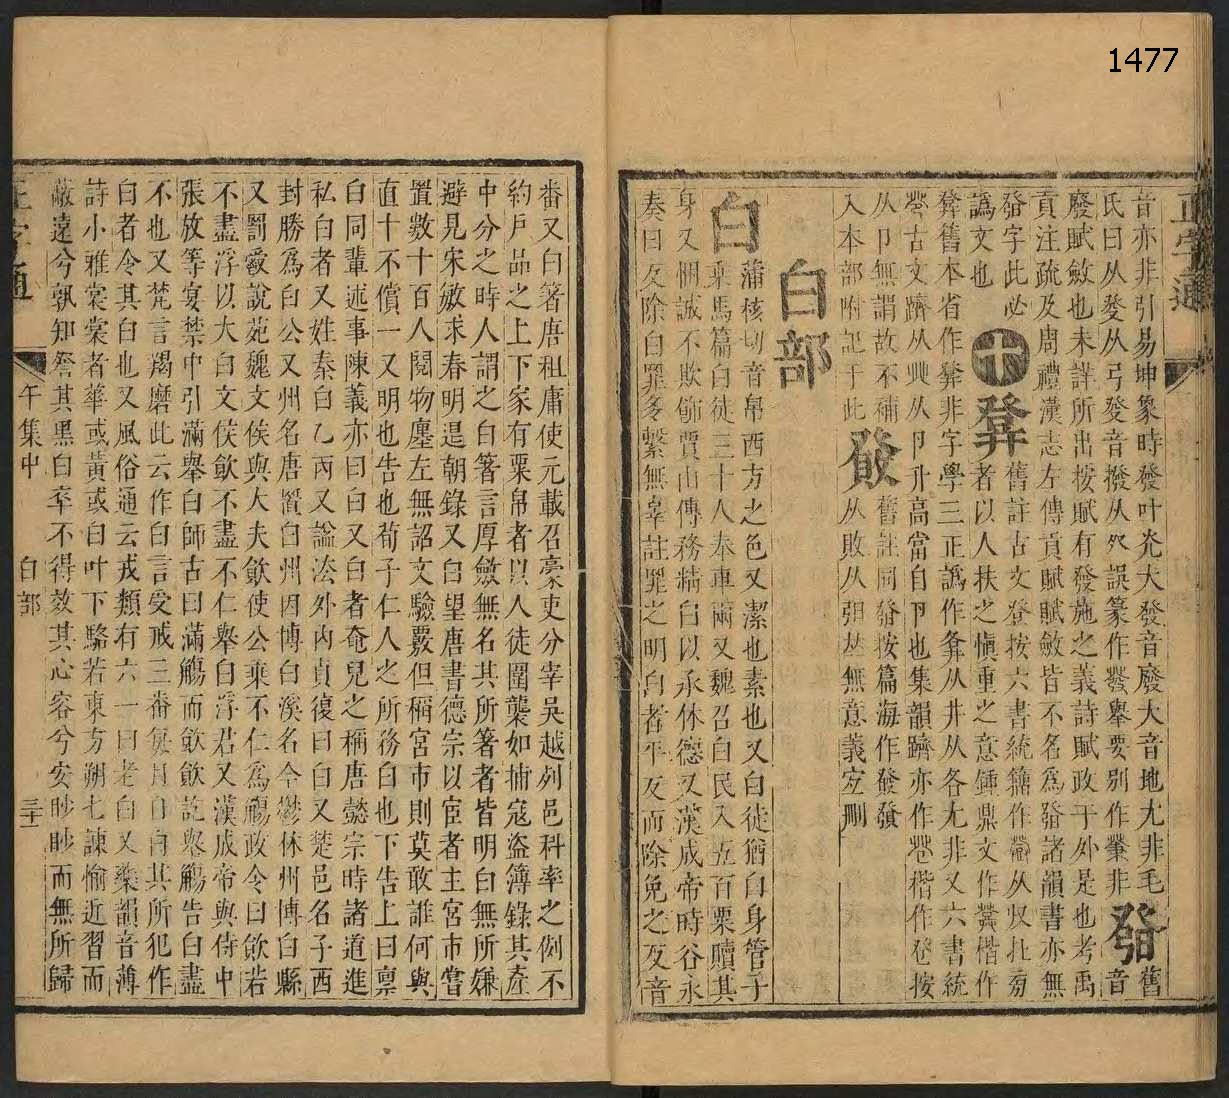 1477
正字通
音亦非引易坤象時發叶光大發音廢大音地尤非毛
氏曰从癹从弓發音撥从殳誤篆作發舉要別作𤼵非 發 舊音
廢賦斂也未詳所出按賦有發施之義詩賦政于外是也考禹
貢注疏及周禮漢志左傳貢賦賦斂皆不名爲發諸韻書亦無
發字此必譌文也
十
舊註古文登按六書統籀作从収扎旁
者以人扶之愼重之意鍾鼎文作楷作
舊本省作非字學三正譌作从井从各尤非又六書統
古文躋从癶从卪升高當自卪也集韻躋亦作楷作登按
从卪無謂故不補舊註同發按篇海作發發
入本部附記于此 从敗从弜𠀤無意義宜刪
白部
白 蒲核切音帛西方之色又潔也素也又白徒猶白身管子
乗馬篇白徒三十人奉車兩又魏召白民入五百粟贖其
身又悃誠不欺飾賈山傳務精白以承休德又漢成帝時谷永
奏曰反除白罪多繫無辜註罪之明白者平反而除免之反音
番又白著唐租庸使元載召豪吏分宰吳越列邑科率之例不
約戸品之上下家有粟帛者以人徒圍襲如捕寇盜簿錄其產
中分之時人謂之白著言厚斂無名其所著者皆明白無所嫌
避見宋敏求春明退朝錄又白望唐書德宗以宦者主宮市嘗
置數十百人閱物廛左無詔文驗覈但稱宮市則莫敢誰何與
直十不償一又明也告也荀子仁人之所務白也下告上曰稟
白同輩述事陳義亦曰白又白者奄兒之稱唐懿宗時諸道進
私白者又姓秦白乙丙又諡法外內貞復曰白又楚邑名子西
封勝爲白公又州名唐置白州因博白溪名今鬱林州博白縣
又罰爵說苑魏文侯與大夫飮使公乗不仁爲觴政令曰飮若
不盡浮以大白文侯飮不盡不仁舉白浮君又漢成帝與侍中
張放等宴禁中引滿舉白師古曰滿觴而飮飮訖舉觴告白盡
不也又梵言羯磨此云作白言受戒三番每月白自其所犯作
白者令其白也又風俗通云戎類有六一曰老白又藥韻音薄
詩小雅裳裳者華或黃或白叶下駱若東方朔七諫愉近習而
蔽遠兮孰知察其黑白卒不得效其心容兮安眇眇而無所歸
正字通
午集中 白部 三十一